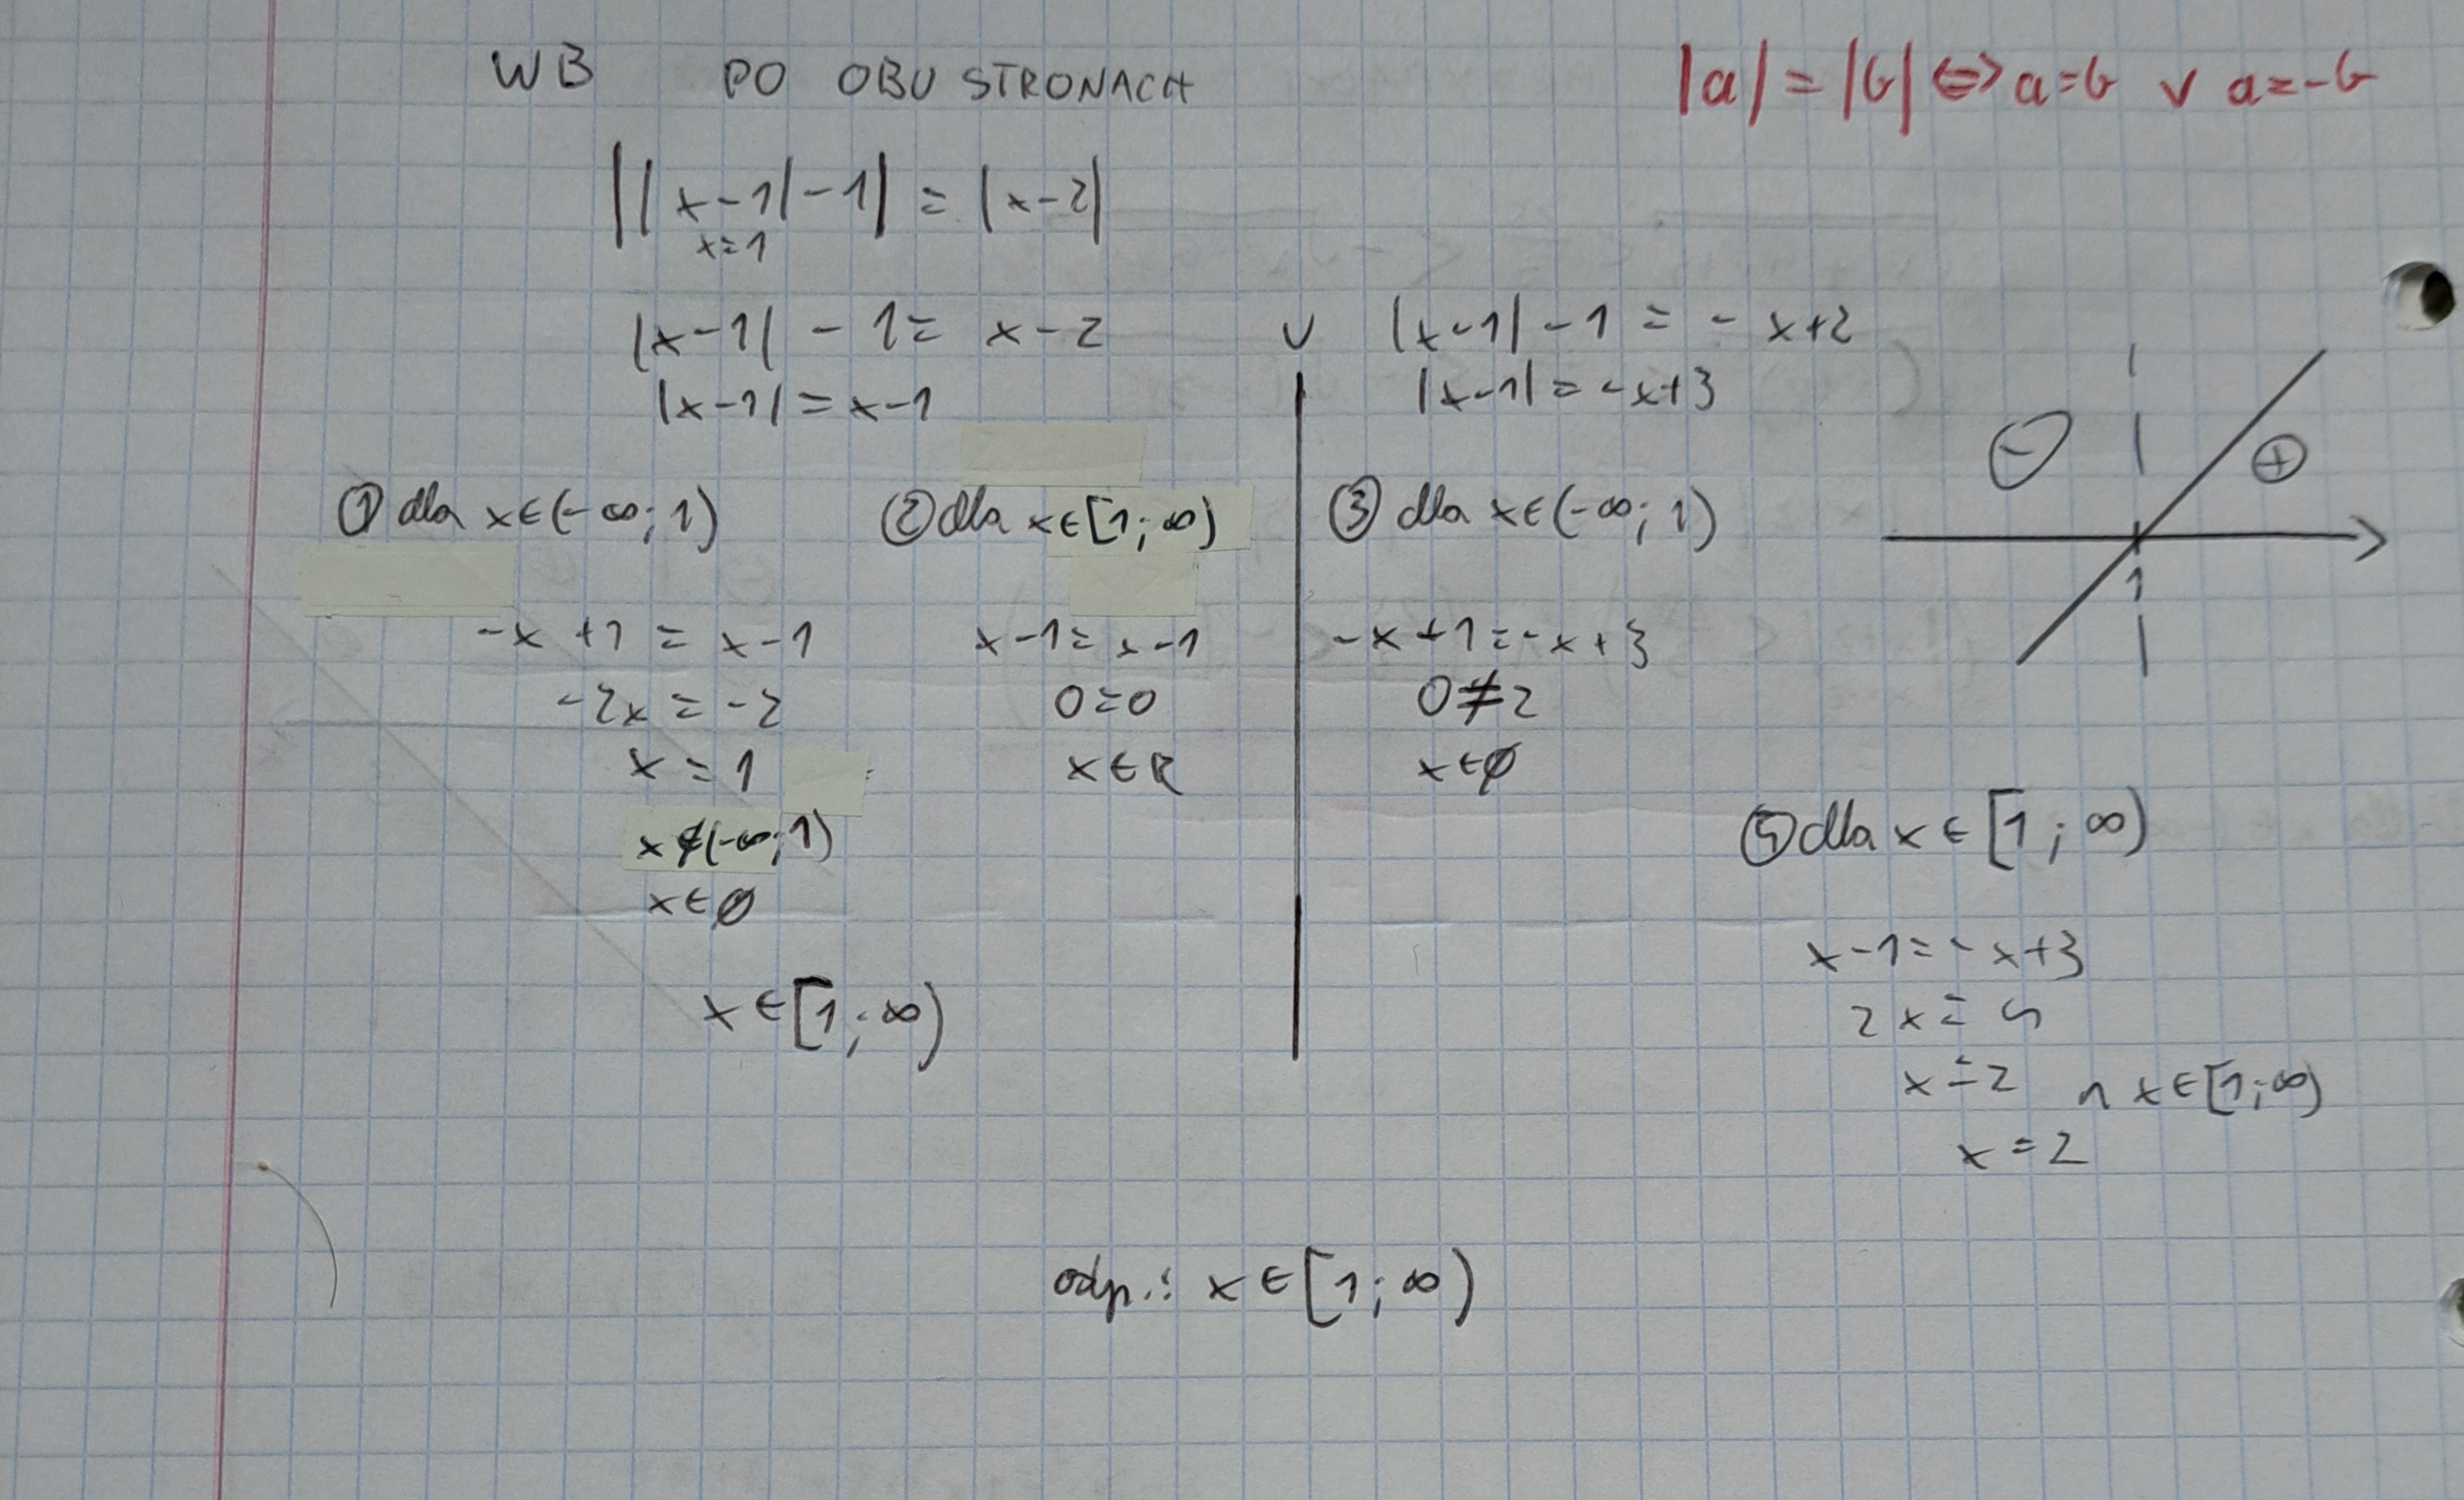 WB PO OBU STRONACH
|a| = |b| ⇔ a=b ∨ a=-b
||x-1|-1| = |x-2|
x=1
|x-1| - 1 = x-2 ∨ |x-1| - 1 = - x+2
|x-1| = x-1
|x-1| = -x+3
① dla x∈(-∞; 1)
-x +1 = x-1
-2x = -2
x = 1
x ∉(-∞; 1)
x∈∅
② dla x∈[1; ∞)
x-1 = x-1
0=0
x∈R
x∈[1; ∞)
③ dla x∈(-∞; 1)
-x+1 = -x+3
0≠2
x∈∅
⊖ ⊕
1
④ dla x∈[1; ∞)
x-1 = -x+3
2x = 4
x=2 ∧ x∈[1; ∞)
x = 2
odp.: x∈[1; ∞)